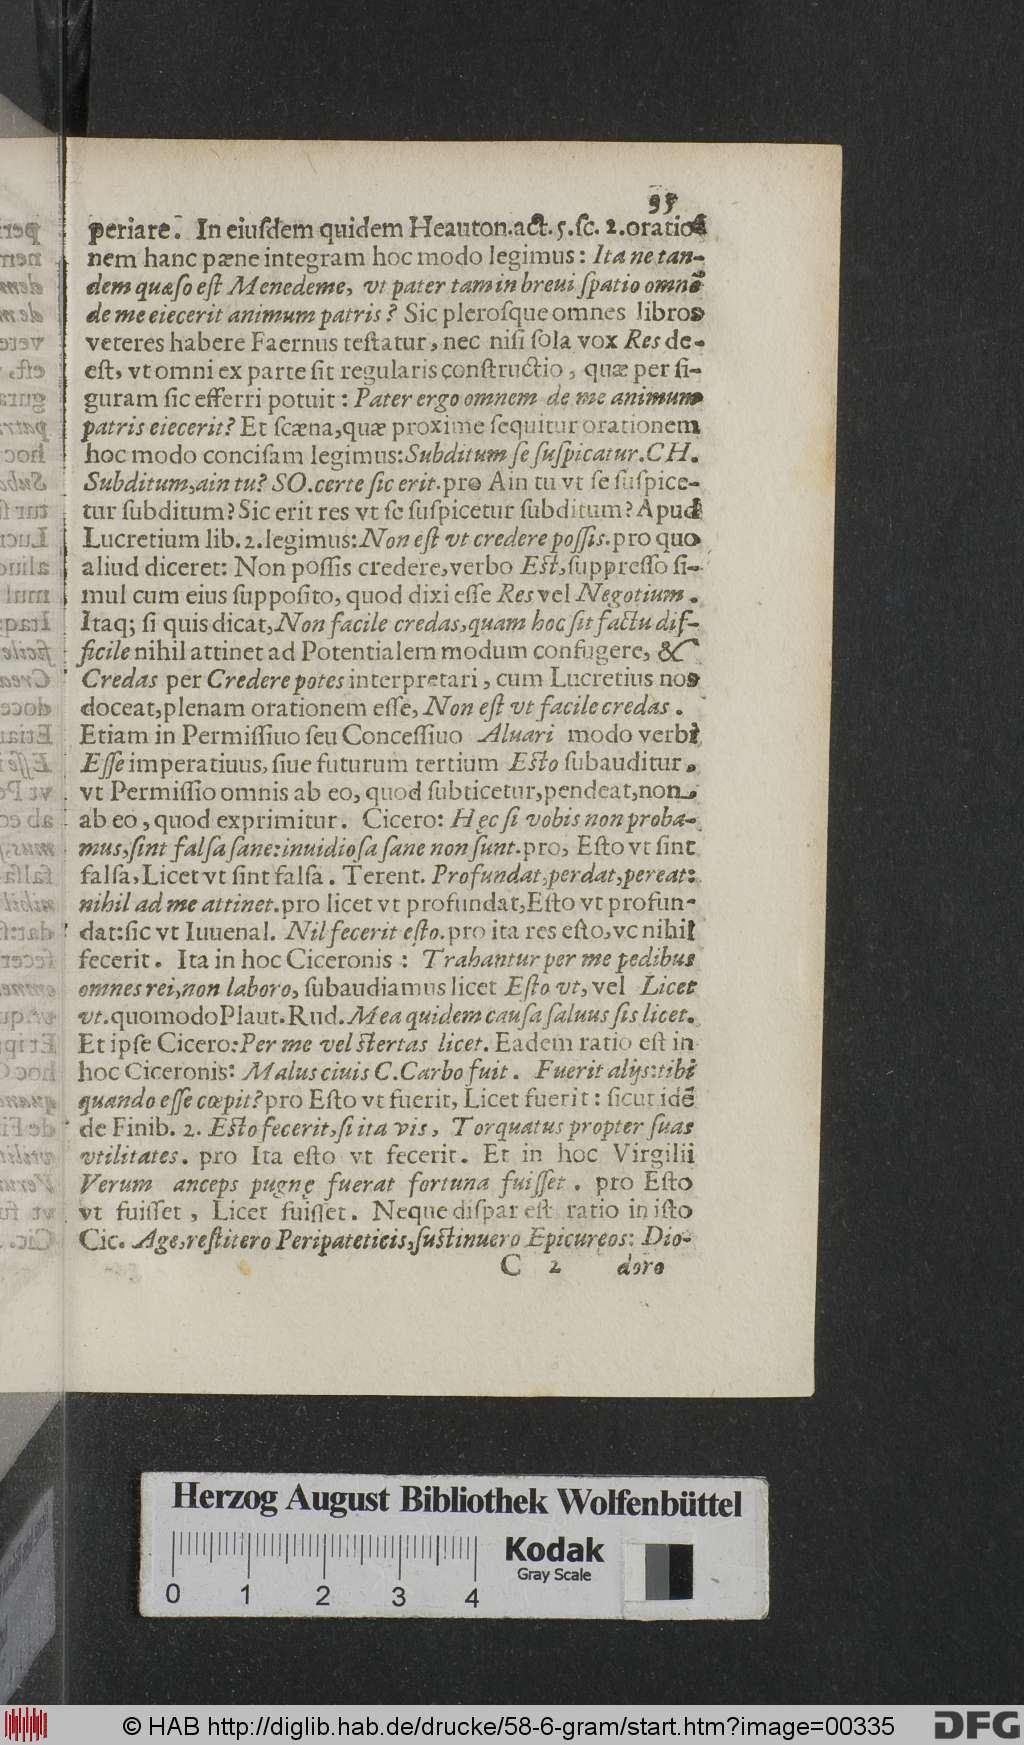 95
periare. In eiuſdem quidem Heauton.act.5.ſc.2.oratio-
nem hanc pæne integram hoc modo legimus: Ita ne tan-
dem quæſo eſt Menedeme, vt pater tam in breui ſpatio omnẽ
de me eiecerit animum patris? Sic pleroſque omnes libros
veteres habere Faernus teſtatur, nec niſi ſola vox Res de-
eſt, vt omni ex parte ſit regularis conſtructio, quæ per fi-
guram ſic efferri potuit: Pater ergo omnem de me animum
patris eiecerit? Et ſcæna, quæ proxime ſequitur orationem
hoc modo conciſam legimus: Subditum ſe ſuſpicatur. CH.
Subditum, ain tu? SO. certe ſic erit. pro Ain tu vt ſe ſuſpice-
tur ſubditum? Sic erit res vt ſe ſuſpicetur ſubditum? Apud
Lucretium lib. 2. legimus: Non eſt vt credere poſſis. pro quo
aliud diceret: Non poſſis credere, verbo Eſt, ſuppreſſo ſi-
mul cum eius ſuppoſito, quod dixi eſſe Res vel Negotium.
Itaq; ſi quis dicat, Non facile credas, quam hoc ſit factu dif-
ficile nihil attinet ad Potentialem modum confugere, &
Credas per Credere potes interpretari, cum Lucretius nos
doceat, plenam orationem eſſe, Non eſt vt facile credas.
Etiam in Permiſſiuo ſeu Conceſſiuo Aluari modo verbi
Eſſe imperatiuus, ſiue futurum tertium Eſto ſubauditur.
vt Permiſſio omnis ab eo, quod ſubticetur, pendeat, non
ab eo, quod exprimitur. Cicero: Hęc ſi vobis non proba-
mus, ſint falſa ſane: inuidioſa ſane non ſunt. pro, Eſto vt ſint
falſa, Licet vt ſint falſa. Terent. Profundat, perdat, pereat:
nihil ad me attinet. pro licet vt profundat, Eſto vt profun-
dat: ſic vt Iuuenal. Nil fecerit eſto. pro ita res eſto, vc nihil
fecerit. Ita in hoc Ciceronis: Trahantur per me pedibus
omnes rei, non laboro, ſubaudiamus licet Eſto vt, vel Licet
vt. quomodo Plaut. Rud. Mea quidem cauſa ſaluus ſis licet.
Et ipſe Cicero: Per me vel ſtertas licet. Eadem ratio eſt in
hoc Ciceronis: Malus ciuis C. Carbo fuit. Fuerit alijs: tibi
quando eſſe cœpit? pro Eſto vt fuerit, Licet fuerit: ſicut idẽ
de Finib. 2. Eſto fecerit, ſi ita vis, Torquatus propter ſuas
vtilitates. pro Ita eſto vt fecerit. Et in hoc Virgilii
Verum anceps pugnę fuerat fortuna fuiſſet. pro Eſto
vt fuiſſet, Licet fuiſſet. Neque diſpar eſt ratio in iſto
Cic. Age, reſtitero Peripateticis, ſuſtinuero Epicureos: Dio-
C 2 doro
Herzog August Bibliothek Wolfenbüttel
Kodak
Gray Scale
0 1 2 3 4
© HAB http://diglib.hab.de/drucke/58-6-gram/start.htm?image=00335
DFG